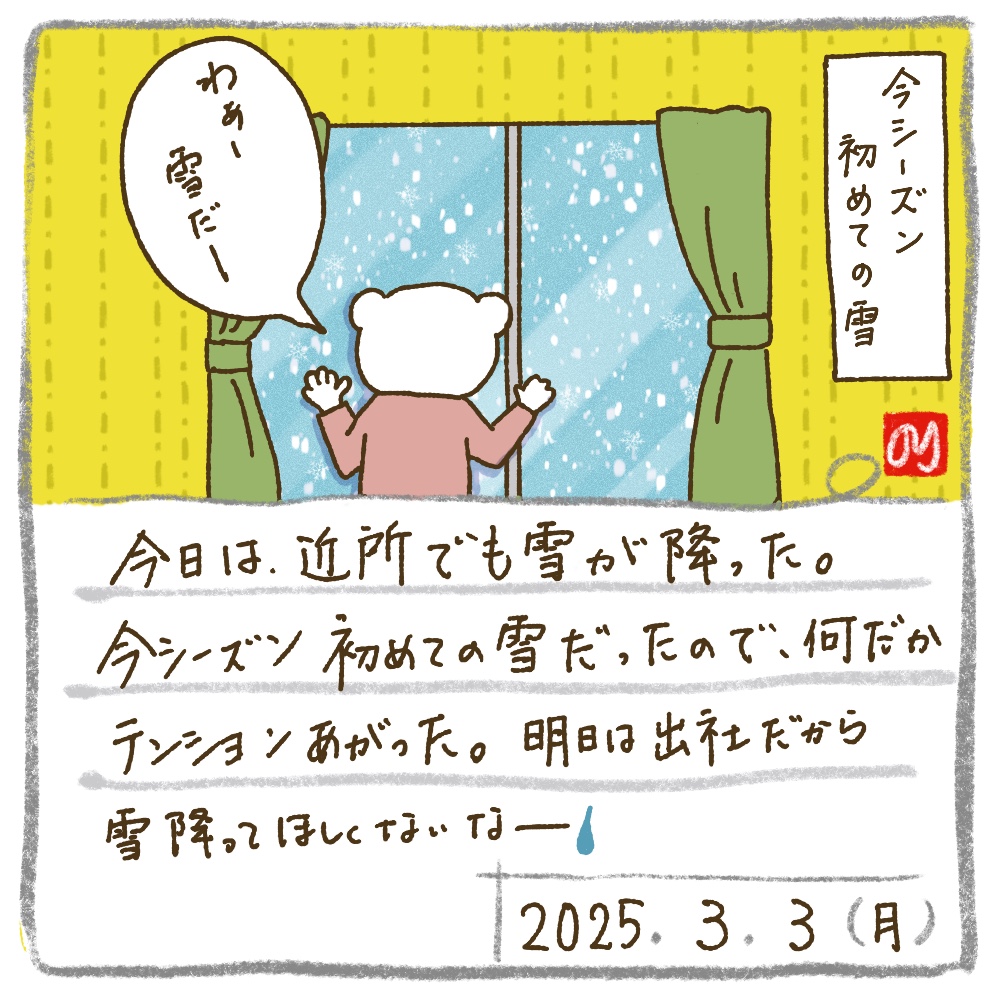 今シーズン
初めての雪
わぁー
雪だー
のり
今日は、近所でも雪が降った。
今シーズン初めての雪だったので、何だか
テンションあがった。明日は出社だから
雪降ってほしくないなー
2025.3.3(月)